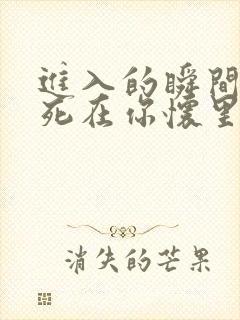 進入的瞬間
死在你懷里
消失的芒果